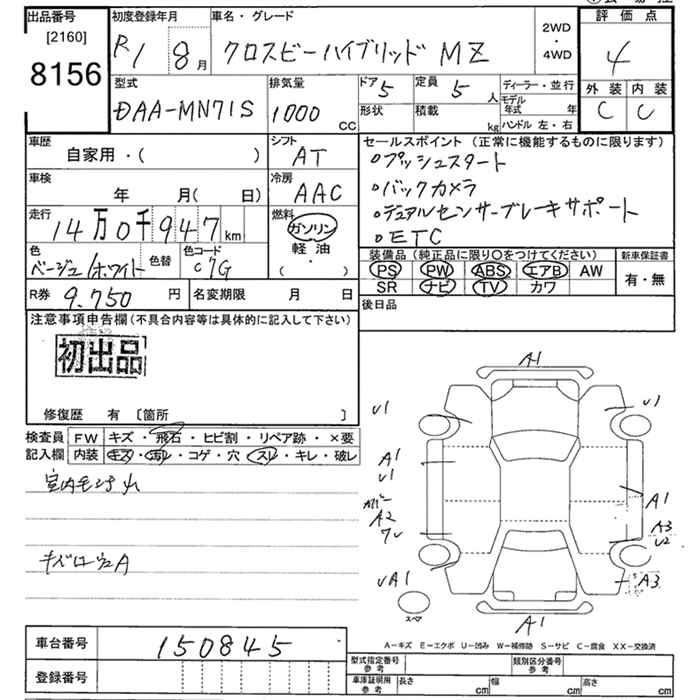 出品番号 初度登録年月 車名・グレード 2WD・4WD 評価点
[2160]
8156 R1 8月 クロスビーハイブリッド MZ 4
型式 排気量 ドア 5 定員 5人 ディーラー・並行 外装 内装
DAA-MN71S 1000cc 形状 積載 kg モデル年式 年 C C
ハンドル 左・右
車歴 シフト セールスポイント (正常に機能するものに限ります)
自家用・( ) AT ○プッシュスタート
車検 冷房 ○バックカメラ
年 月( 日) AAC ○デュアルセンサーブレーキサポート
走行 燃料 ○ETC
14万0千947km ガソリン
軽油
・( )
色 色替 色コード 装備品 (純正品に限り○をつけてください) 新車保証書
ベージュ/ホワイト C7G PS PW ABS エアB AW 有・無
SR ナビ TV カワ
R券 9.750円 名変期限 月 日 後日品
注意事項申告欄 (不具合内容等は具体的に記入して下さい)
初出品
修復歴 有 〔箇所 〕
検査員 FW キズ・飛石・ヒビ割・リペア跡・×要
記入欄 内装 キズ・汚レ・コゲ・穴・スレ・キレ・破レ
A1
U1
U1
A1
U1
A1
A2
A3
U2
A3
UA1
スペア
A1
A－キズ E－エクボ U－凹み W－補修跡 S－サビ C－腐食 XX－交換済
車台番号 150845
登録番号
型式指定番号 参考 類別区分番号 参考
車庫証明用 参考 長さ cm 幅 cm 高さ cm